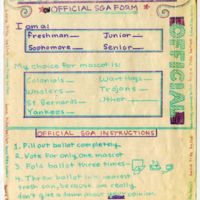 OFFICIAL SGA FORM
I am a:
Freshman__ Junior__
Sophomore__ Senior__
My choice for mascot is:
Colonials__ Wart Hogs__
Whalers__ Trojans__
St. Bernards__ Other__
Yankees__
OFFICIAL
OFFICIAL SGA INSTRUCTIONS
1. Fill out ballot completely.
2. Vote for only one mascot
3. Fold ballot three times-
4. Throw ballot in nearest
trash can, because we really
don't give a damn about your opinion.